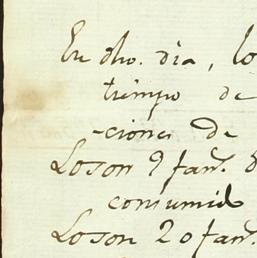 En dho. dia, lo
tiempo de
-ciones de
Loson 9 fan.s
consumido
Loson 20 fan.s